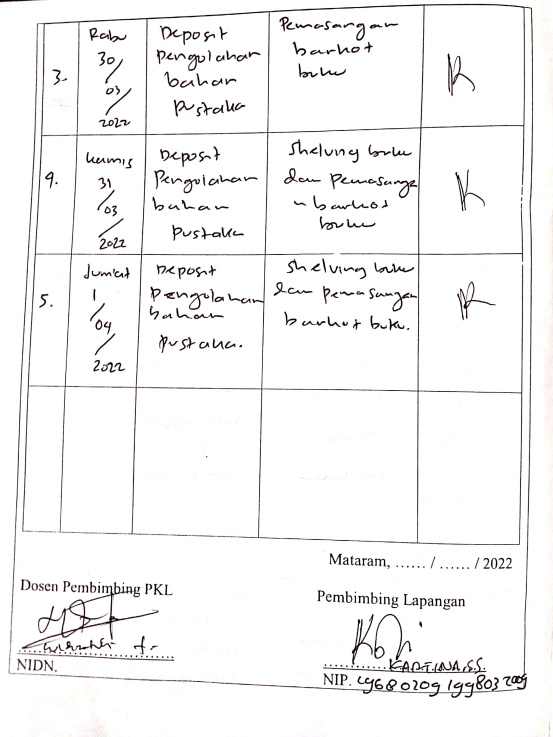 3.
Rabu
30
/
03
/
2022
Deposit
Pengolahan
bahan
Pustaka
Pemasangan
barkot
buku
4.
Kamis
31
/
03
/
2022
Deposit
Pengolahan
bahan
Pustaka
Shelving buku
dan Pemasanga
n barkot
buku
5.
Jumat
1
/
04
/
2022
Deposit
Pengolahan
bahan
Pustaka.
Shelving buku
dan pemasangan
barkot buku.
Mataram, ...... / ...... / 2022
Dosen Pembimbing PKL
Pembimbing Lapangan
KARTINA, S.S.
NIDN.
NIP. 19680209 199803 2009